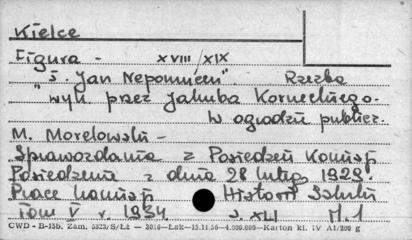 Kielce
Figura - XVIII/XIX
"ś. Jan Nepomucen". Rzeźba
wyk. przez Jakuba Kornecknego.
w ogrodzie publicz.
M. Morelowski -
Sprawozdania z Posiedzeń Komisji
Posiedzenia z dnia 28 lutego 1929.
Prace Komisji Historii Sztuki
Tom V r. 1934 s. XLI M. 1
CWD - B-15b. Zam. 5323/S/Łź - 3016-Łak-15.11.56-4.000.000-Karton kl. IV A1/200 g